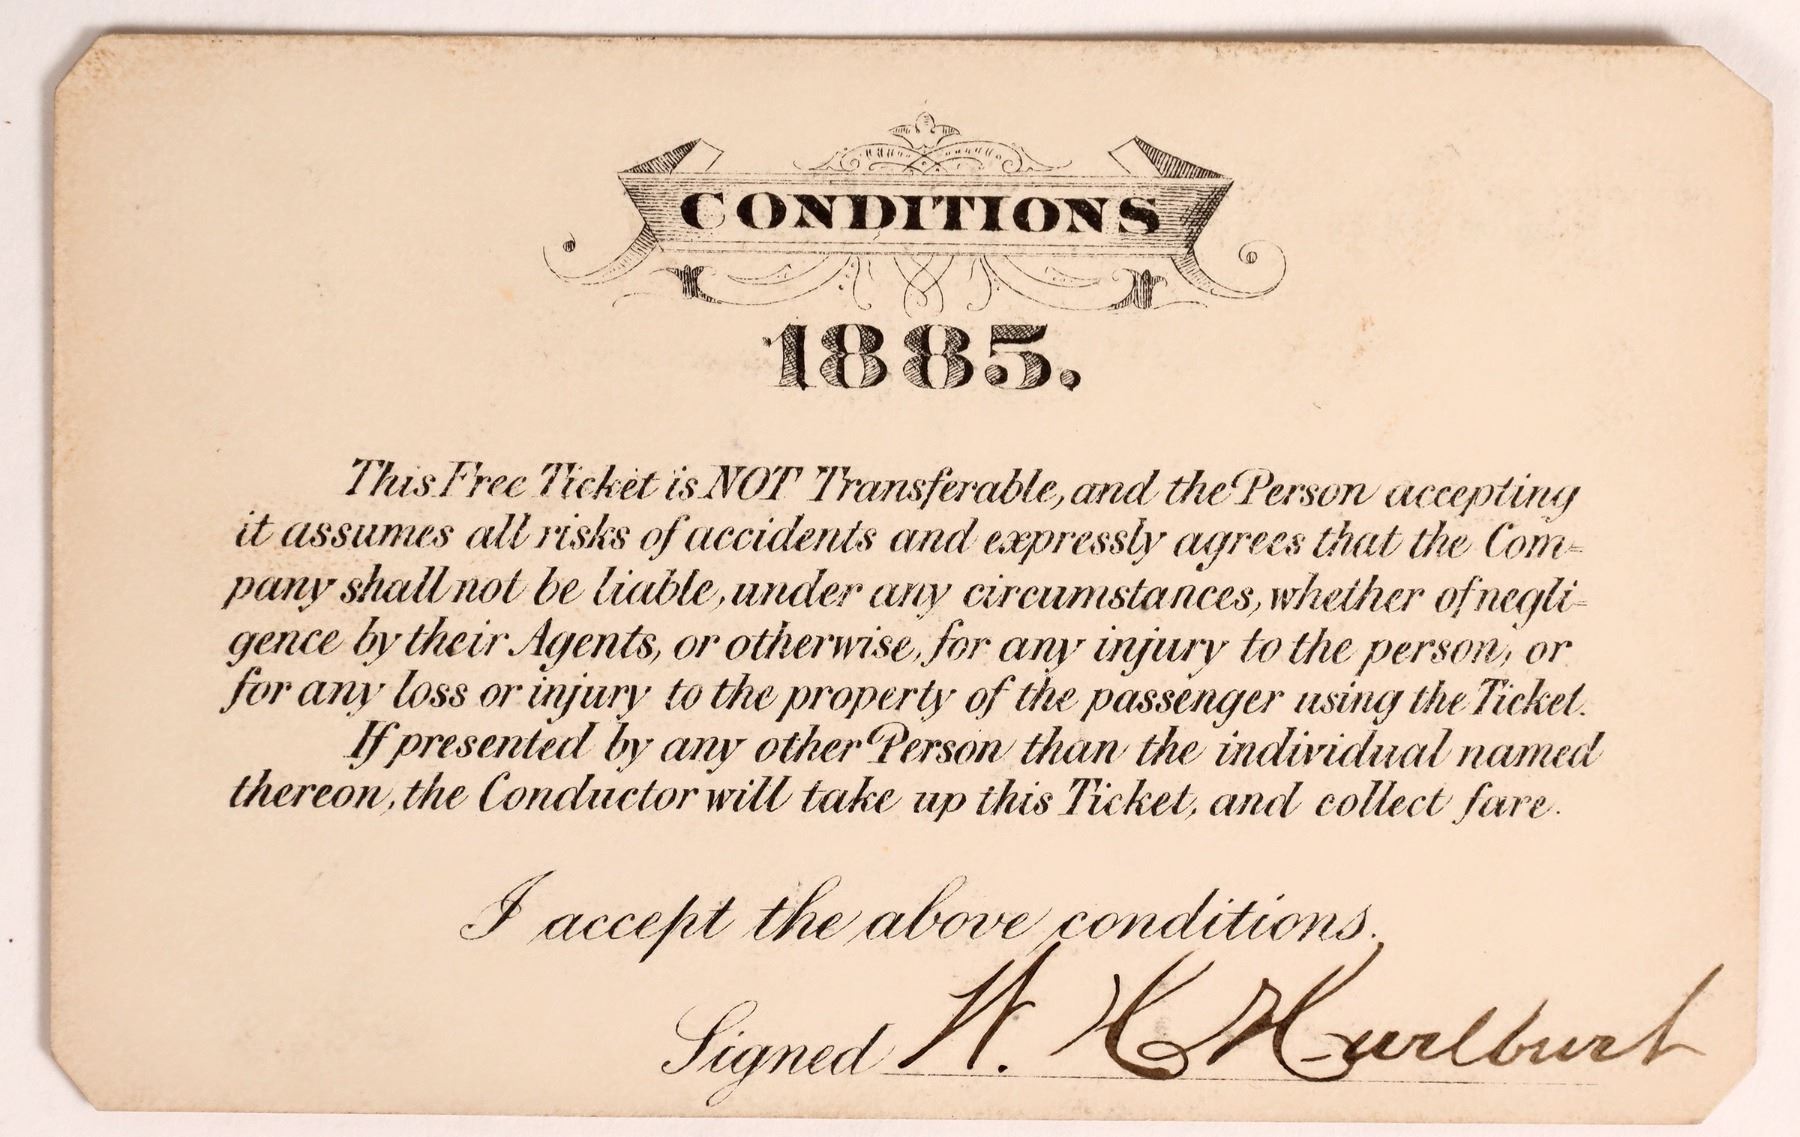 CONDITIONS
1885.
This Free Ticket is NOT Transferable, and the Person accepting
it assumes all risks of accidents and expressly agrees that the Com=
pany shall not be liable, under any circumstances, whether of negli=
gence by their Agents, or otherwise, for any injury to the person, or
for any loss or injury to the property of the passenger using the Ticket.
If presented by any other Person than the individual named
thereon, the Conductor will take up this Ticket, and collect fare.
I accept the above conditions.
Signed W. H Hurlburt